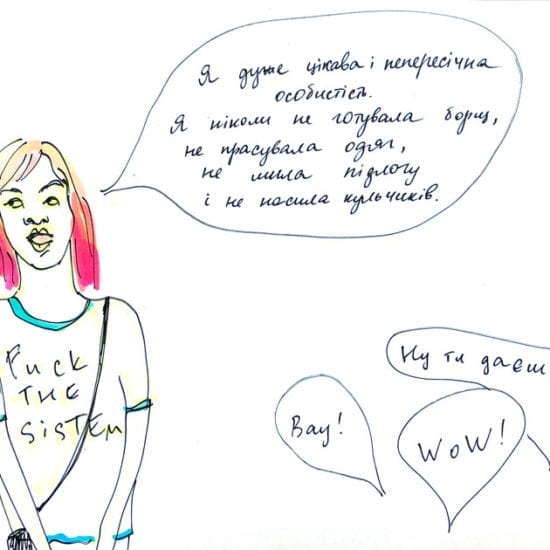 Я дуже цікава і непересічна
особистість.
Я ніколи не готувала борщ,
не прасувала одяг,
не мила підлогу
і не носила кульчиків.
Fuck
THE
SiSTEM
Ну ти даєш
Вау!
WoW!